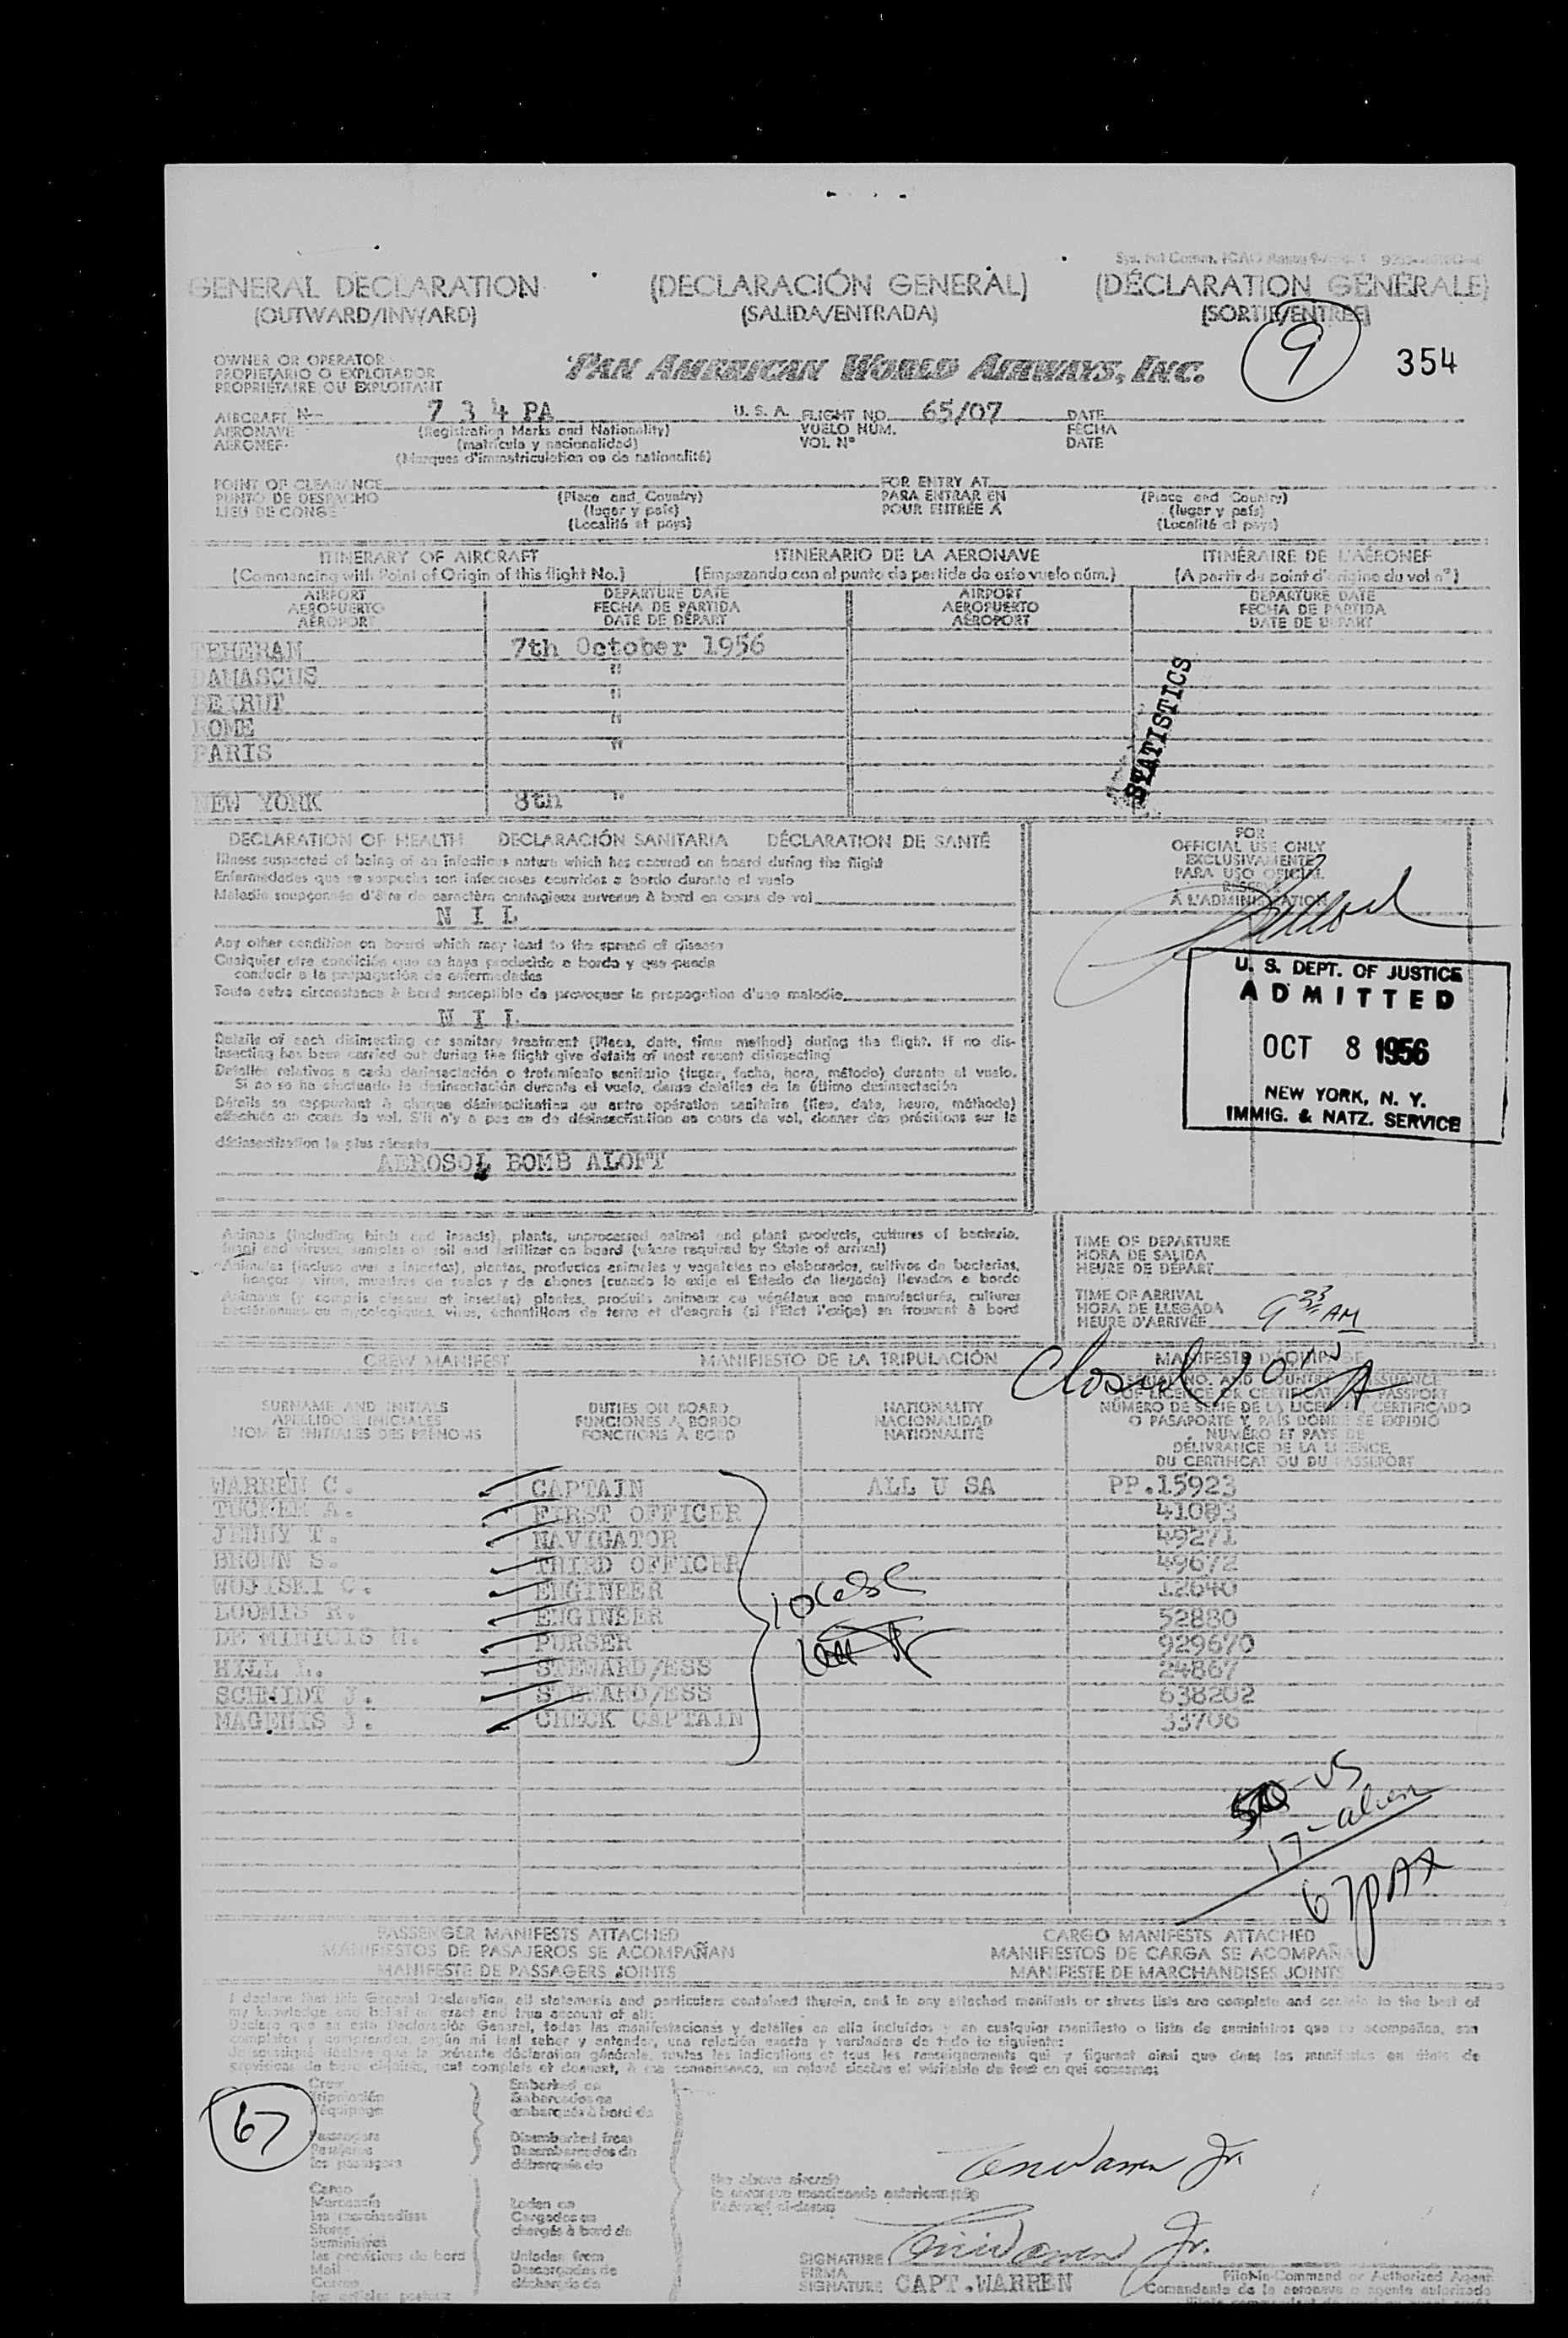 GENERAL DECLARATION (DECLARACIÓN GENERAL) (DÉCLARATION GÉNÉRALE)
(OUTWARD/INWARD) (SALIDA/ENTRADA) (SORTIE/ENTRÉE)
9
354
OWNER OR OPERATOR
PROPIETARIO O EXPLOTADOR
PROPRIÉTAIRE OU EXPLOITANT
PAN AMERICAN WORLD AIRWAYS, INC.
AIRCRAFT N- 734 PA U. S. A. FLIGHT NO. 65/07 DATE
AERONAVE (Registration Marks and Nationality) VUELO NÚM. FECHA
AÉRONEF (matrícula y nacionalidad) VOL Nº DATE
(Marques d'immatriculation ou de nationalité)
POINT OF CLEARANCE FOR ENTRY AT
PUNTO DE DESPACHO (Place and Country) PARA ENTRAR EN (Place and Country)
LIEU DE CONGÉ (lugar y país) POUR ENTRÉE À (lugar y país)
(Localité et pays) (Localité et pays)
ITINERARY OF AIRCRAFT ITINERARIO DE LA AERONAVE ITINÉRAIRE DE L'AÉRONEF
(Commencing with Point of Origin of this flight No.) (Empezando con el punto de partida de este vuelo núm.) (A partir du point d'origine du vol nº)
AIRPORT DEPARTURE DATE AIRPORT DEPARTURE DATE
AEROPUERTO FECHA DE PARTIDA AEROPUERTO FECHA DE PARTIDA
AÉROPORT DATE DE DÉPART AÉROPORT DATE DE DÉPART
TEHERAN 7th October 1956
DAMASCUS "
BEIRUT "
ROME "
PARIS "
NEW YORK 8th "
STATISTICS
DECLARATION OF HEALTH DECLARACIÓN SANITARIA DÉCLARATION DE SANTÉ
Illness suspected of being of an infectious nature which has occured on board during the flight
Enfermedades que se sospecha son infecciosas ocurridas a bordo durante el vuelo
Maladie soupçonnée d'être de caractère contagieux survenue à bord en cours de vol
N I L
Any other condition on board which may lead to the spread of disease
Cualquier otra condición que se haya producido a bordo y que pueda
conducir a la propagación de enfermedades
Toute autre circonstance à bord susceptible de provoquer la propagation d'une maladie
N I L
Details of each disinsecting or sanitary treatment (Place, date, time method) during the flight. If no dis-
insecting has been carried out during the flight give details of most recent disinsecting
Detalles relativos a cada desinsectación o tratamiento sanitario (lugar, fecha, hora, método) durante el vuelo.
Si no se ha efectuado la desinsectación durante el vuelo, dense detalles de la última desinsectación
Détails se rapportant à chaque désinsectisation ou autre opération sanitaire (lieu, date, heure, méthode)
effectués au cours de vol. S'il n'y a pas eu de désinsectisation au cours de vol, donner des précisions sur la
désinsectisation la plus récente
AEROSOL BOMB ALOFT
FOR
OFFICIAL USE ONLY
EXCLUSIVAMENTE
PARA USO OFICIAL
RÉSERVÉ
À L'ADMINISTRATION
U. S. DEPT. OF JUSTICE
ADMITTED
OCT 8 1956
NEW YORK, N. Y.
IMMIG. & NATZ. SERVICE
Animals (including birds and insects), plants, unprocessed animal and plant products, cultures of bacteria,
fungi and viruses, samples of soil and fertilizer on board (where required by State of arrival)
Animales (incluso aves e insectos), plantas, productos animales y vegetales no elaborados, cultivos de bacterias,
hongos y virus, muestras de suelos y de abonos (cuando lo exija el Estado de llegada) llevados a bordo
Animaux (y compris oiseaux et insectes) plantes, produits animaux ou végétaux non manufacturés, cultures
bactériennes ou mycologiques, virus, échantillons de terre et d'engrais (si l'État l'exige) se trouvant à bord
TIME OF DEPARTURE
HORA DE SALIDA
HEURE DE DÉPART
TIME OF ARRIVAL
HORA DE LLEGADA
HEURE D'ARRIVÉE 9 23 AM
Closed
CREW MANIFEST MANIFIESTO DE LA TRIPULACIÓN MANIFESTE D'ÉQUIPAGE
SURNAME AND INITIALS DUTIES ON BOARD NATIONALITY
APELLIDO E INICIALES FUNCIONES A BORDO NACIONALIDAD
NOM ET INITIALES DES PRÉNOMS FONCTIONS À BORD NATIONALITÉ
SERIAL NO. AND COUNTRY ISSUANCE
OF LICENCE OR CERTIFICATE PASSPORT
NÚMERO DE SERIE DE LA LICENCIA, CERTIFICADO
O PASAPORTE Y PAÍS DONDE SE EXPIDIÓ
NUMÉRO ET PAYS DE
DÉLIVRANCE DE LA LICENCE,
DU CERTIFICAT OU DU PASSEPORT
WARREN C. CAPTAIN ALL U SA PP.15923
TUCKER A. FIRST OFFICER 41083
JENNY T. NAVIGATOR 49271
BROWN S. THIRD OFFICER 49672
ENGINEER 12640
LOOMIS R. ENGINEER 52880
DE MINICIS PURSER 929670
HILL L. STEWARD/ESS 24867
SCHMIDT J. STEWARD/ESS 638202
MAGENIS J. CHECK CAPTAIN 33706
US
17-alien
67 PAX
PASSENGER MANIFESTS ATTACHED CARGO MANIFESTS ATTACHED
MANIFIESTOS DE PASAJEROS SE ACOMPAÑAN MANIFIESTOS DE CARGA SE ACOMPAÑAN
MANIFESTE DE PASSAGERS JOINTS MANIFESTE DE MARCHANDISES JOINTS
I declare that this General Declaration, all statements and particulars contained therein, and in any attached manifests or stores lists are complete and certain to the best of
my knowledge and belief an exact and true account of all:
Declaro que en esta Declaración General, todas las manifestaciones y detalles en ella incluidos y en cualquier manifiesto o lista de suministros que se acompañan, son
completos y comprenden, según mi leal saber y entender, una relación exacta y verdadera de todo lo siguiente:
67
Crew Embarked on
Tripulación Embarcados en
équipage embarqués à bord de
Passengers Disembarked from
Pasajeros Desembarcados de
les passagers débarqués de
Cargo
Mercancía Laden on
les marchandises Cargados en
Stores chargés à bord de
Suministros
les provisions de bord Unladen from
Mail Descargados de
Correo déchargés de
les articles postaux
the above aircraft
la aeronave mencionada anteriormente
l'aéronef ci-dessus
Warren Jr.
Warren Jr.
SIGNATURE
FIRMA
SIGNATURE CAPT.WARREN
Pilot-in-Command or Authorized Agent
Comandante de la aeronave o agente autorizado